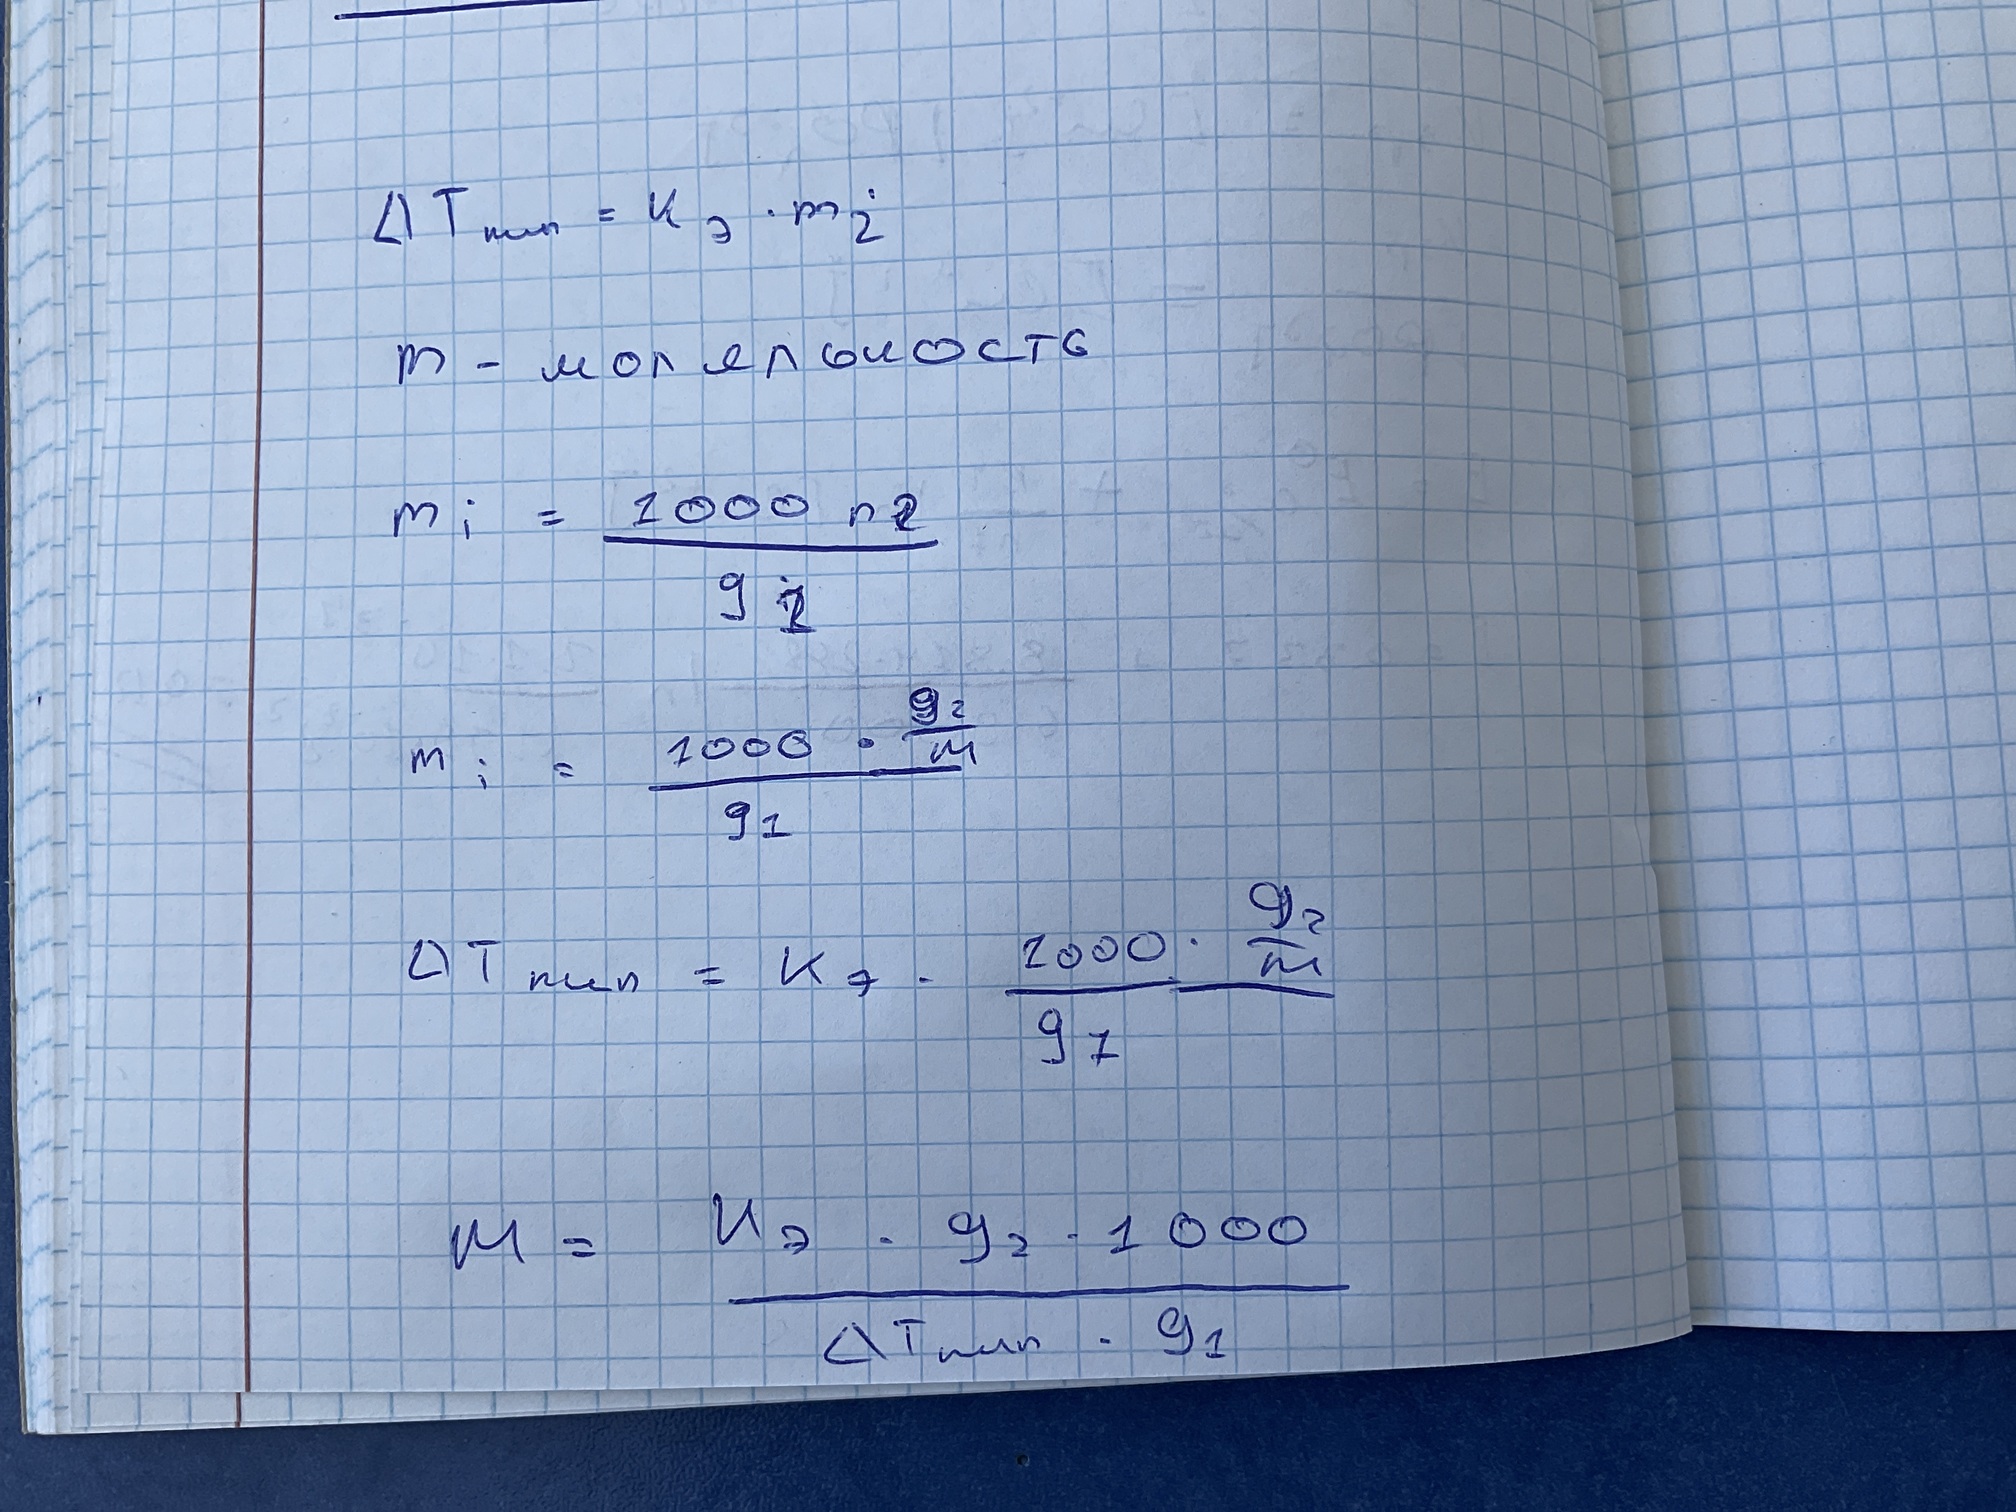 ΔT кип = К э · m i
m - моляльность
m i = 1000 n2 / g 1
m i = 1000 · g2/M / g1
ΔT кип = К э · 1000 · g2/M / g1
M = К э · g2 · 1000 / ΔT кип · g1